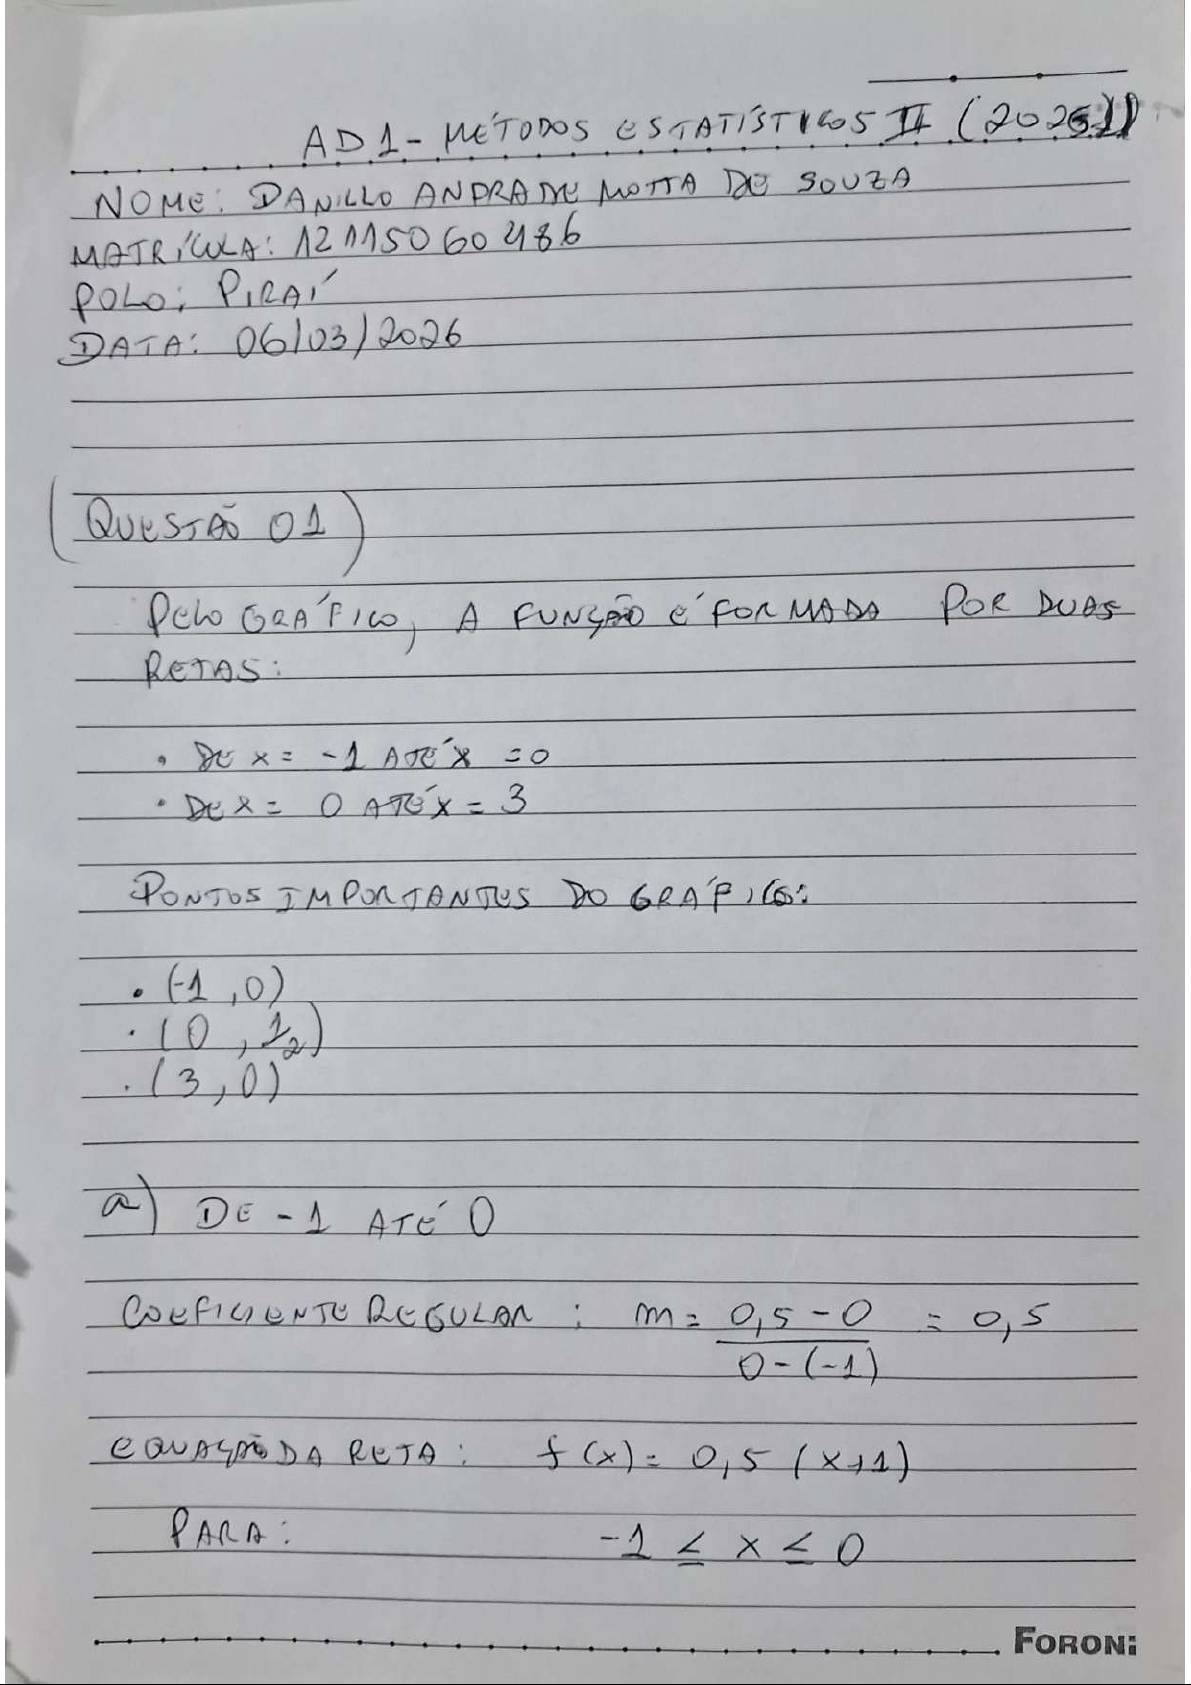 AD1 - MÉTODOS ESTATÍSTICOS II (2026.1)
NOME: DANILLO ANDRADE MOTTA DE SOUZA
MATRÍCULA: 12115060486
POLO: PIRAÍ
DATA: 06/03/2026
(QUESTÃO 01)
PELO GRÁFICO, A FUNÇÃO É FORMADA POR DUAS
RETAS:
• DE x = -1 ATÉ x = 0
• DE x = 0 ATÉ x = 3
PONTOS IMPORTANTES DO GRÁFICO:
• (-1, 0)
• (0, 1/2)
• (3, 0)
a) DE -1 ATÉ 0
COEFICIENTE REGULAR: m = 0,5 - 0 / 0 - (-1) = 0,5
EQUAÇÃO DA RETA: f(x) = 0,5 (x+1)
PARA: -1 ≤ x ≤ 0
FORONI